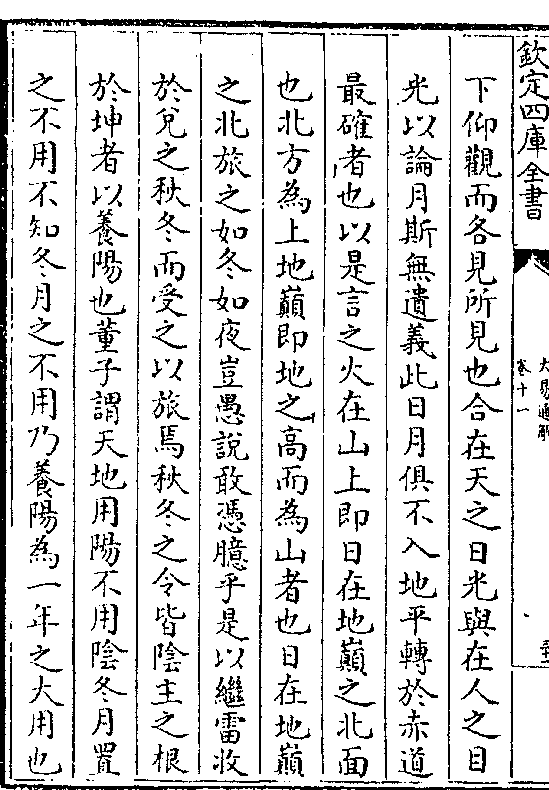 欽定四庫全書
大易通解
卷十一
下仰觀而各見所見也合在天之日光與在人之目
光以論月斯無遺義此日月俱不入地平轉於赤道
最確者也以是言之火在山上即日在地巔之北面
也北方為上地巔即地之高而為山者也日在地巔
之北旅之如冬如夜豈愚說敢憑臆乎是以繼雷收
於兌之秋冬而受之以旅焉秋冬之令皆陰主之根
於坤者以養陽也董子謂天地用陽不用陰冬月置
之不用不知冬月之不用乃養陽為一年之大用也